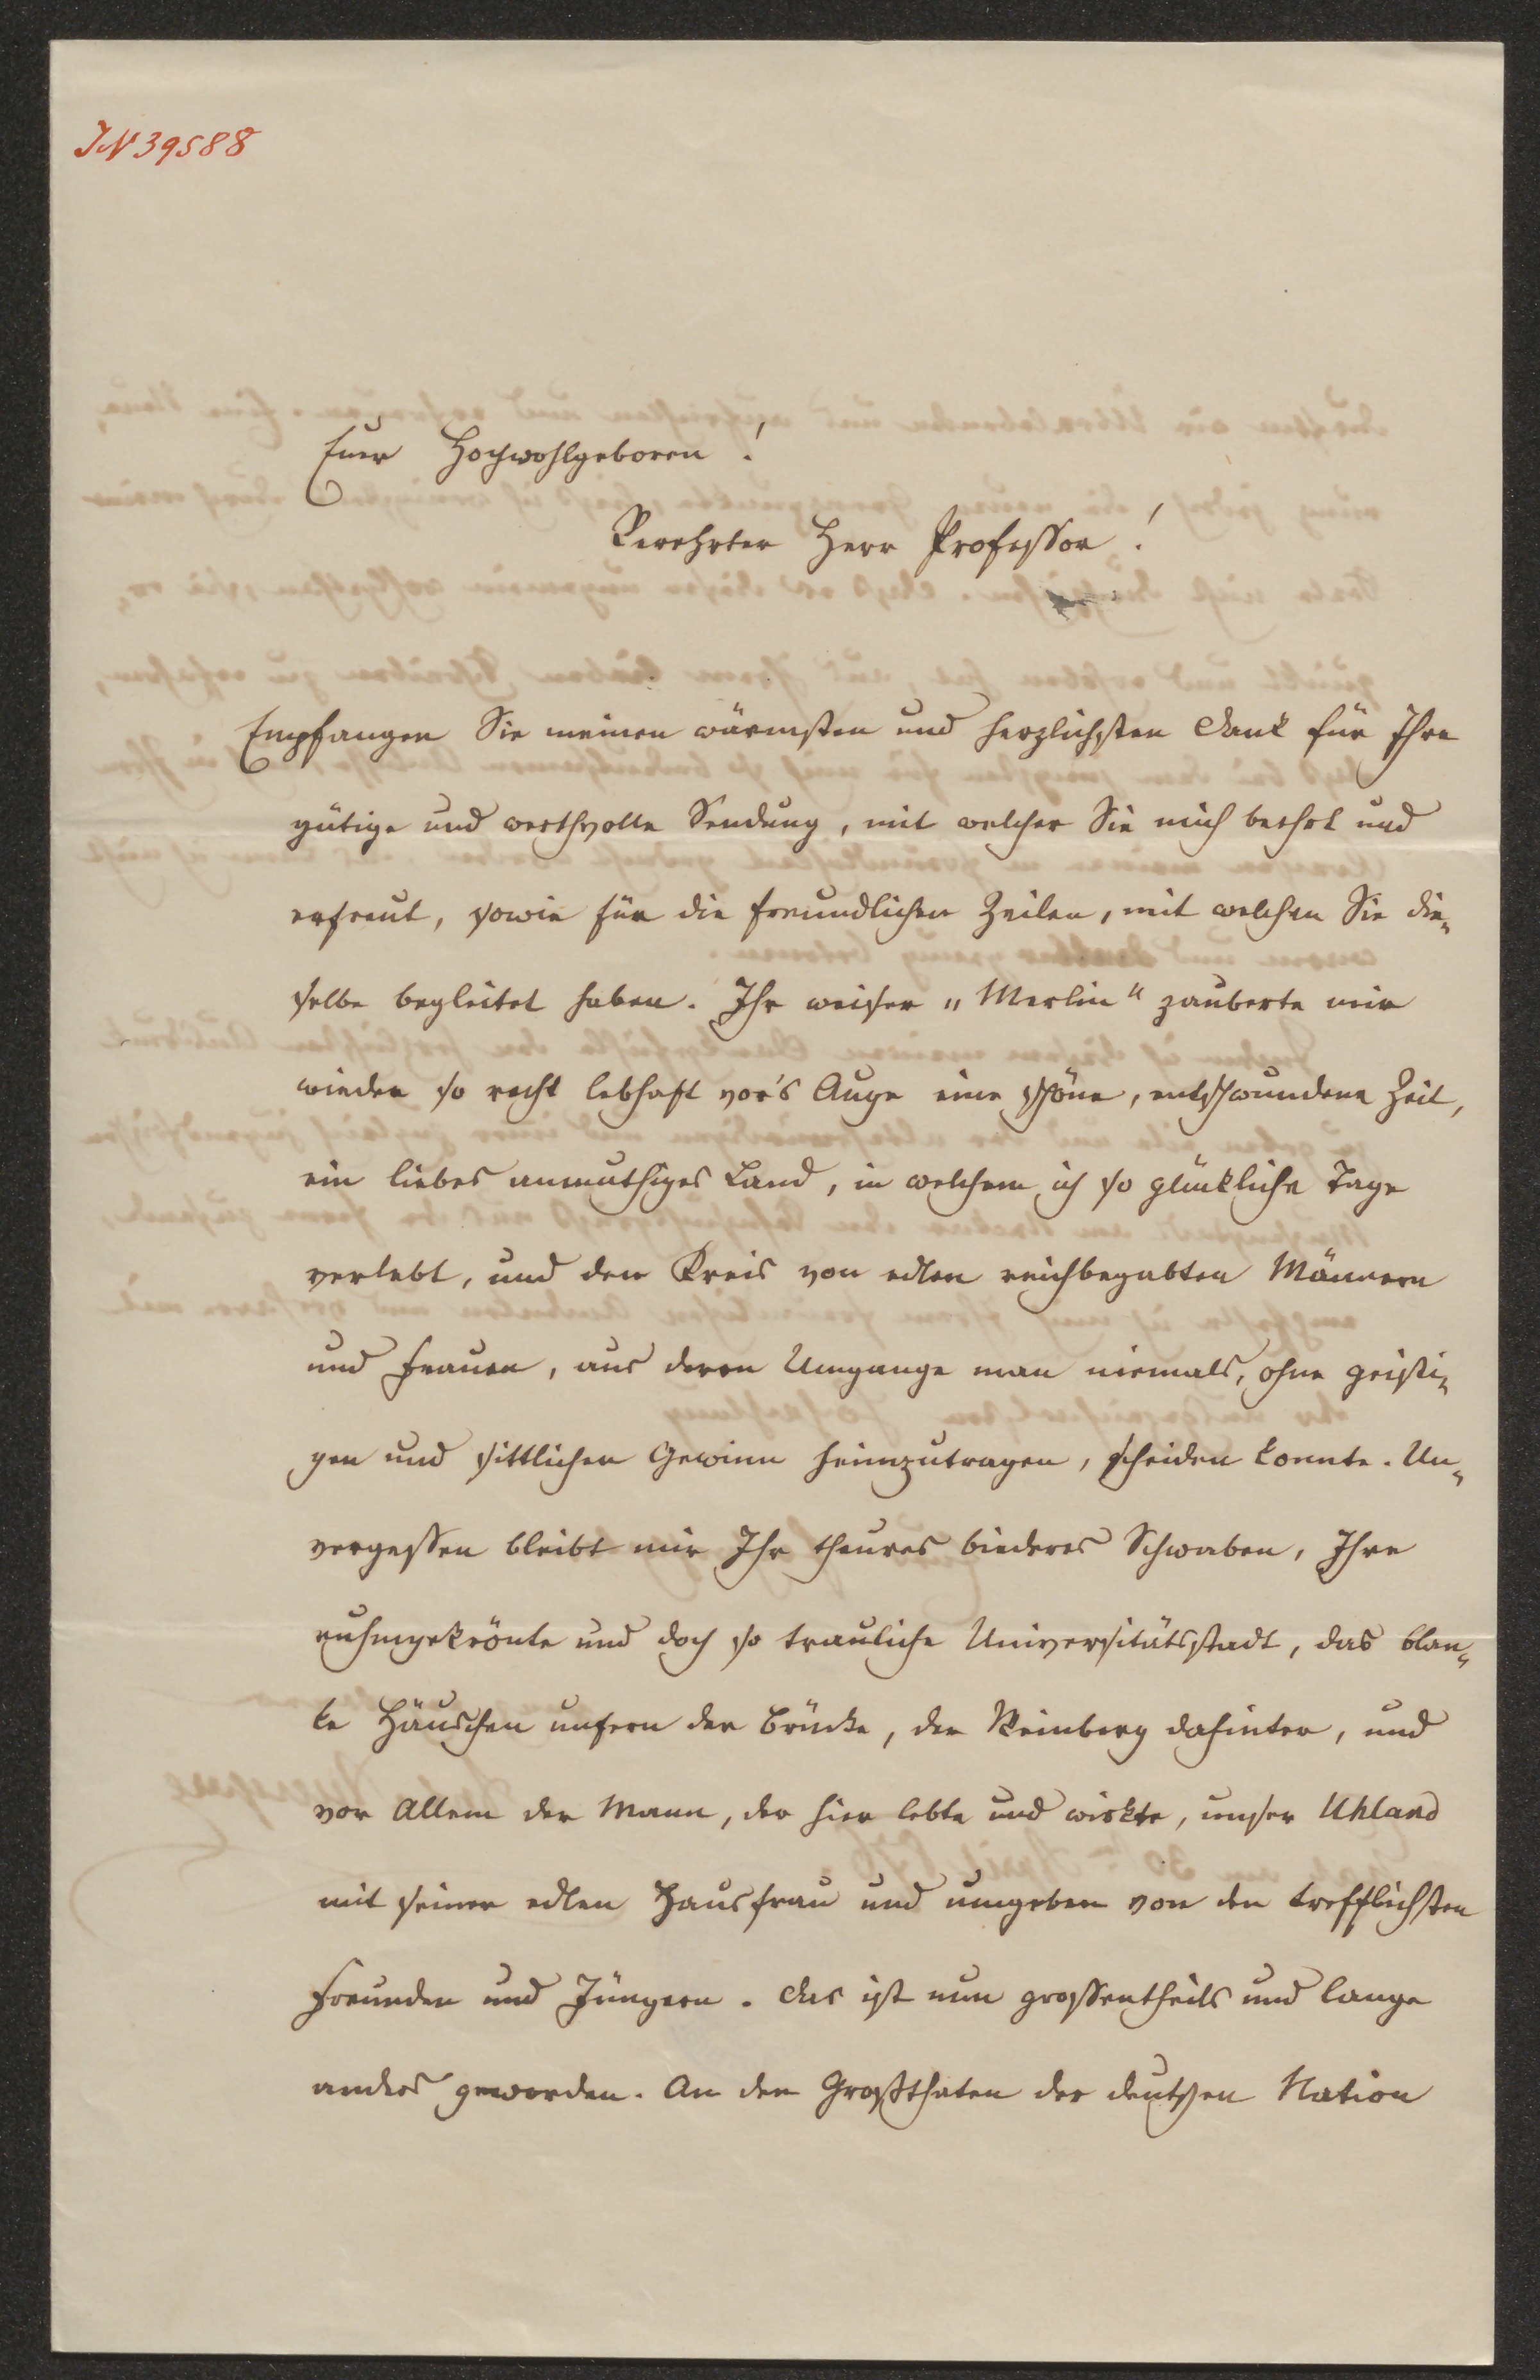 IN 39588
Euer Hochwohlgeboren!
Verehrter Herr Professor!
Empfangen Sie meinen wärmsten und herzlichsten Dank für Ihre
gütige und werthvolle Sendung, mit welcher Sie mich beehrt und
erfreut, sowie für die freundlichen Zeilen, mit welchen Sie die-
selbe begleitet haben. Ihr weiser „Merlin“ zauberte mir
wieder so recht lebhaft vor's Auge eine schöne, entschwundene Zeit,
ein liebes anmuthiges Land, in welchem ich so glückliche Tage
verlebt, und den Kreis von edlen reichbegabten Männern
und Frauen, aus deren Umgange man niemals, ohne geisti-
gen und sittlichen Gewinn heimzutragen, scheiden konnte. Un-
vergessen bleibt mir Ihr theures biederes Schwaben, Ihre
ruhmgekrönte und doch so trauliche Universitätsstadt, das blan-
ke Häuschen unfern der Brücke, der Weinberg dahinter, und
vor Allem der Mann, der hier lebte und wirkte, unser Uhland
mit seiner edlen Hausfrau und umgeben von den trefflichsten
Freunden und Jüngern. Das ist nun grossentheils und lange
anders geworden. An den Großthaten der deutschen Nation